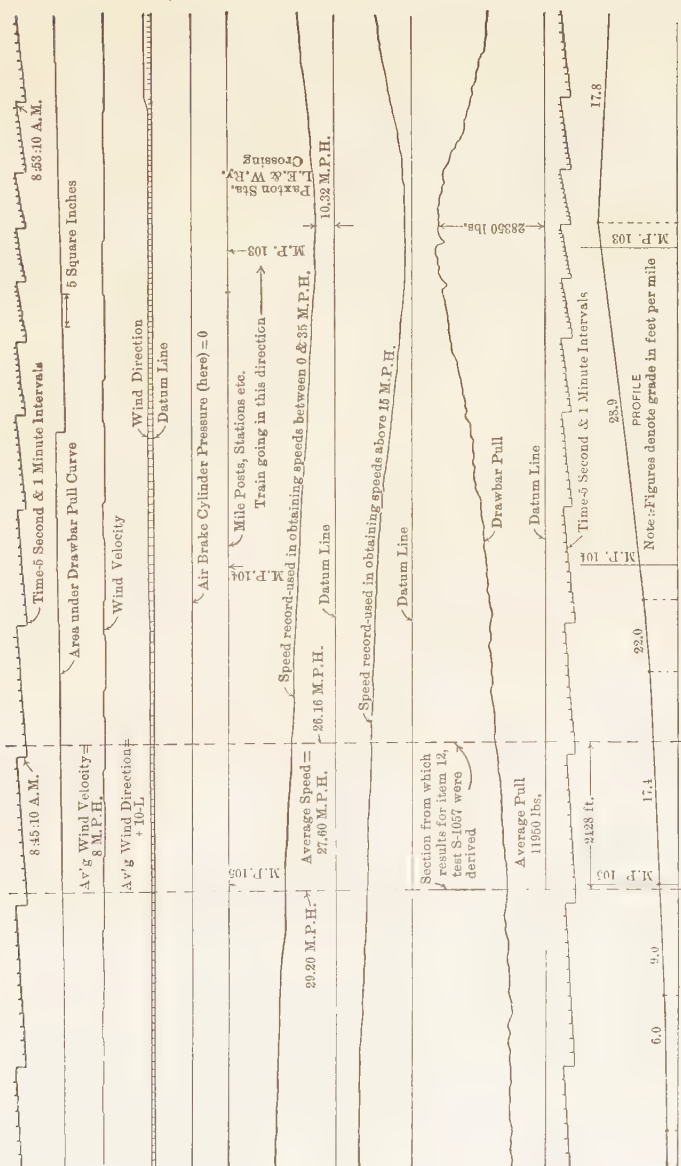 8:45:10 A.M.
Time-5 Second & 1 Minute Intervals
8:53:10 A.M.
Area under Drawbar Pull Curve
5 Square Inches
Av'g Wind Velocity=
8 M.P.H.
Wind Velocity
Av'g Wind Direction=
+10-L
Wind Direction
Datum Line
Air Brake Cylinder Pressure (here) = 0
M.P. 105
M.P. 104
Mile Posts, Stations etc.
Train going in this direction
M.P. 103
Paxton Sta.
L.E.& W.Ry.
Crossing
29.20 M.P.H.
Average Speed=
27.60 M.P.H.
26.16 M.P.H.
Speed record-used in obtaining speeds between 0 & 35 M.P.H.
10.32 M.P.H.
Datum Line
Speed record-used in obtaining speeds above 15 M.P.H.
Datum Line
Section from which
results for item 12,
test S-1057 were
derived
Drawbar Pull
28350 lbs.
Average Pull
11950 lbs.
Datum Line
Time-5 Second & 1 Minute Intervals
2428 ft.
M.P. 105
M.P. 104
M.P. 103
6.0
9.0
17.4
22.0
28.9
17.8
PROFILE
Note:-Figures denote grade in feet per mile